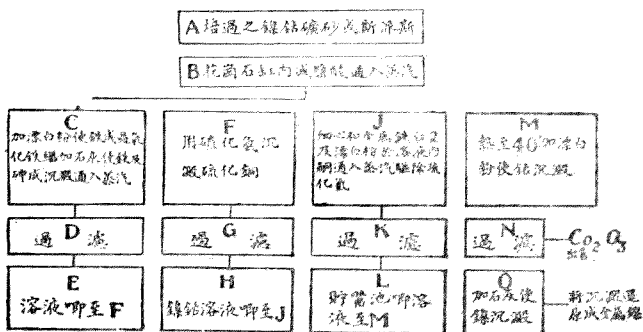 A 焙過之鎳鈷礦砂或斯派斯
B 花崗石缸內鹽酸通入蒸汽
C
加漂白粉使鐵成過氧
化鐵繼加石灰使鐵及
砷成沉澱通入蒸汽
D
過濾
E
溶液唧至F
F
用硫化氫沉
澱硫化銅
G
過濾
H
鎳鈷溶液唧至J
J
及漂白粉
銅通入蒸汽驅除硫
化氫
K
過濾
L
貯蓄池唧溶
液至M
M
熱至40°加漂白
粉使鈷沉澱
N
過濾
Co₂O₃
Q
加石灰使
鎳沉澱
將沉澱還
原成金屬鎳